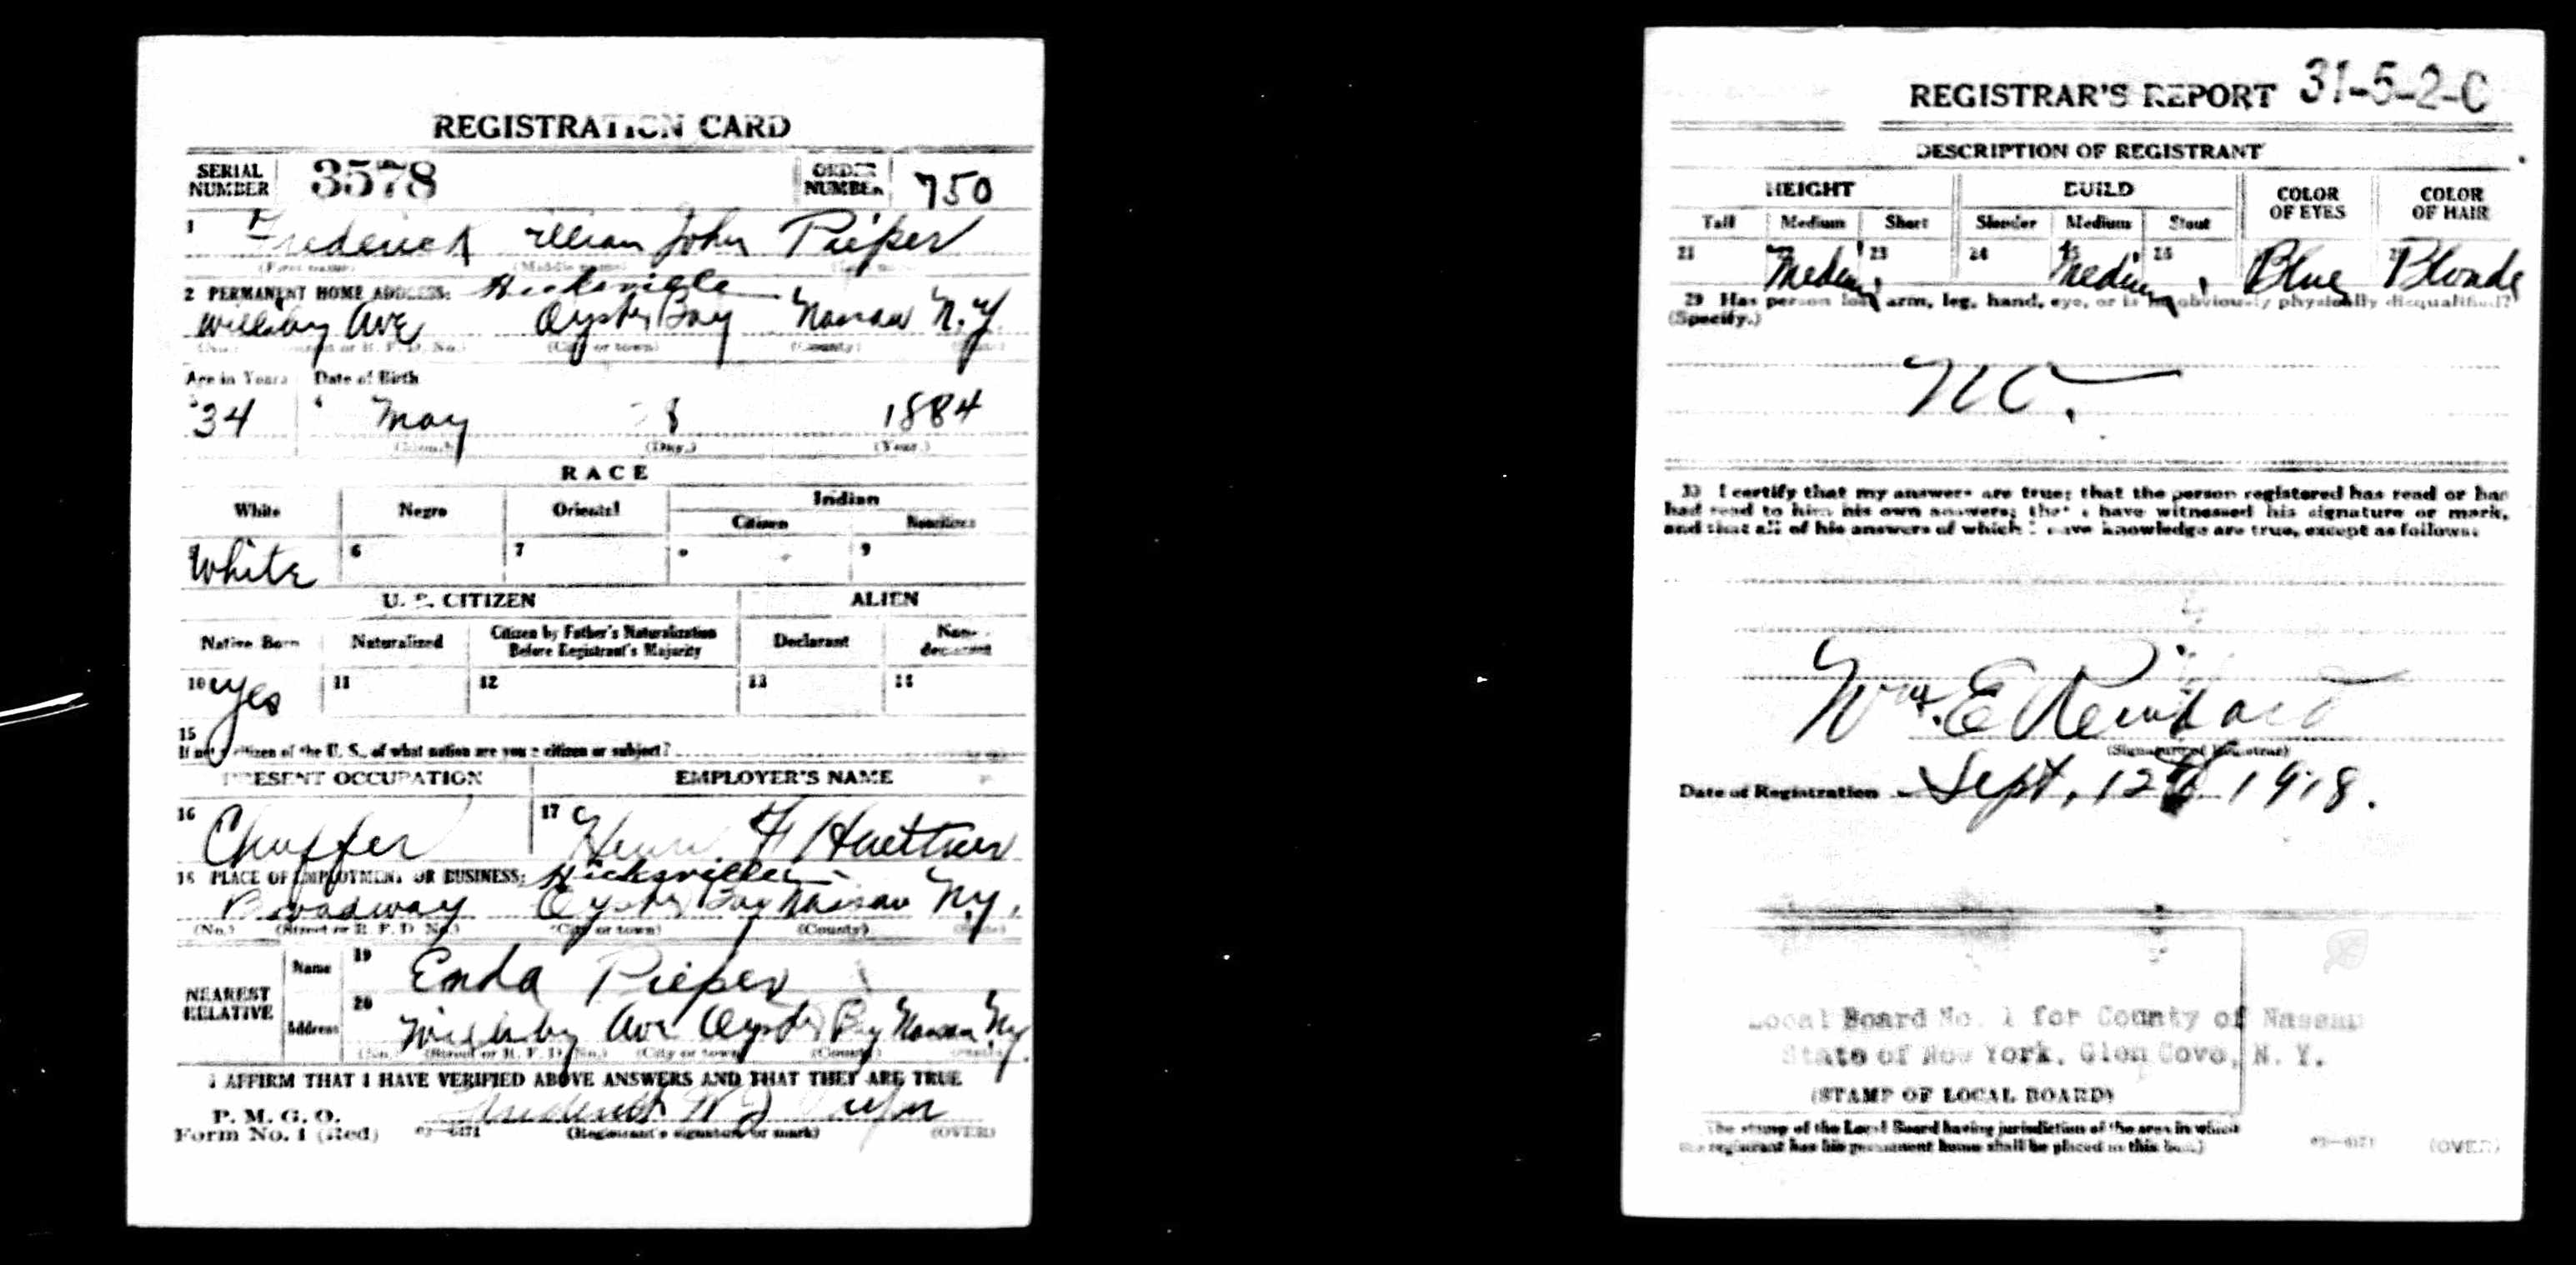 REGISTRATION CARD
SERIAL NUMBER 3578 ORDER NUMBER 750
1 Frederick William John Pieper
(First name) (Middle name)
2 PERMANENT HOME ADDRESS: Hicksville
Willoby Ave Oyster Bay Nassau N.Y.
(No.) (Street or R. F. D. No.) (City or town) (County) (State)
Age in Years Date of Birth
3 34 4 May 8 1884
(Month) (Day.) (Year.)
RACE
White Negro Oriental Indian
Citizen Noncitizen
White 6 7 9
U. S. CITIZEN ALIEN
Native Born Naturalized Citizen by Father's Naturalization Before Registrant's Majority Declarant Non-declarant
10 Yes 11 12 13 14
15
If not a citizen of the U. S., of what nation are you a citizen or subject?
PRESENT OCCUPATION EMPLOYER'S NAME
16 Chuffer 17 Henry F Huettner
18 PLACE OF EMPLOYMENT OR BUSINESS: Hicksville
Broadway Oyster Bay Nassau N.Y.
(No.) (Street or R. F. D. No.) (City or town) (County) (State)
NEAREST RELATIVE
Name 19 Enda Pieper
Address 20 Willoby Ave Oyster Bay Nassau N.Y.
(No.) (Street or R. F. D. No.) (City or town) (County) (State)
I AFFIRM THAT I HAVE VERIFIED ABOVE ANSWERS AND THAT THEY ARE TRUE
P. M. G. O.
Form No. 1 (Red) 03—6171 Frederick W J Pieper
(Registrant's signature or mark) (OVER)
REGISTRAR'S REPORT 31-5-2-C
DESCRIPTION OF REGISTRANT
HEIGHT BUILD COLOR OF EYES COLOR OF HAIR
Tall Medium Short Slender Medium Stout
21 22 Medium 23 24 25 Medium 26 Blue Blonde
29 Has person lost arm, leg, hand, eye, or is he obviously physically disqualified?
(Specify.)
No.
30 I certify that my answers are true; that the person registered has read or has
had read to him his own answers; that I have witnessed his signature or mark,
and that all of his answers of which I have knowledge are true, except as follows:
Wm. E Reinhard
(Signature of Registrar)
Date of Registration Sept. 12 1918.
Local Board No. 1 for County of Nassau
State of New York, Glen Cove, N. Y.
(STAMP OF LOCAL BOARD)
(The stamp of the Local Board having jurisdiction of the area in which
the registrant has his permanent home shall be placed in this box.)
03—6171 (OVER)